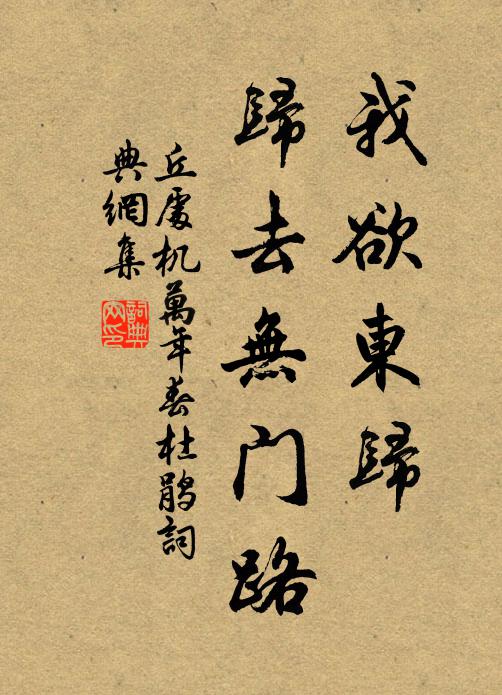 我欲東歸
歸去無門路
丘處机萬年春杜鵑詞
典網集
詞典
网印